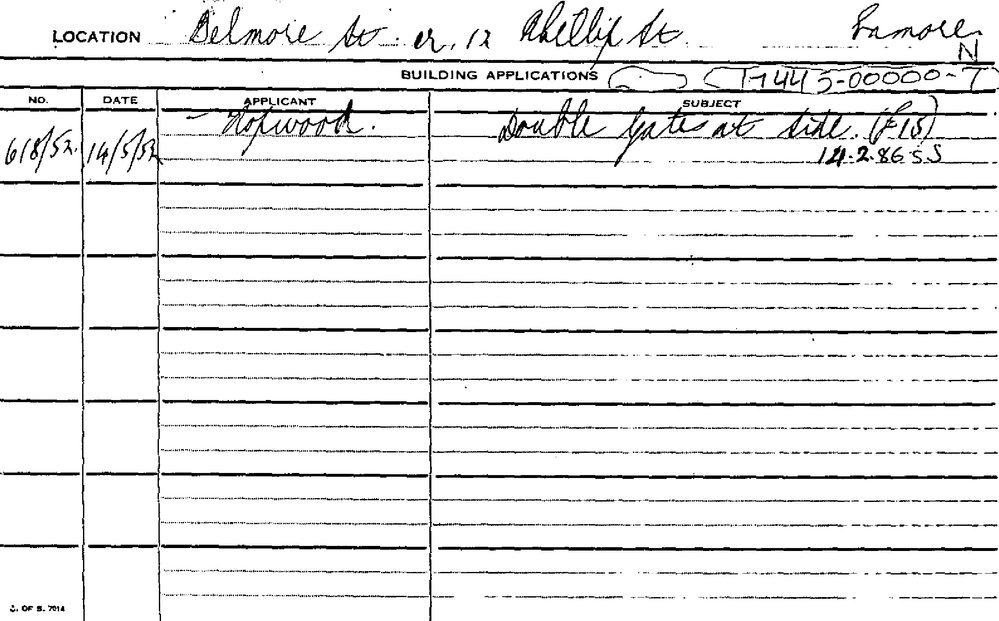 LOCATION Belmore St. cr. 12 Phillip St.
N
BUILDING APPLICATIONS 17445-00000-7
NO. DATE APPLICANT SUBJECT
618/52. 14/5/52 Hopwood. Double Gates at side. (£15)
14.2.86 SS
C. OF B. 7014